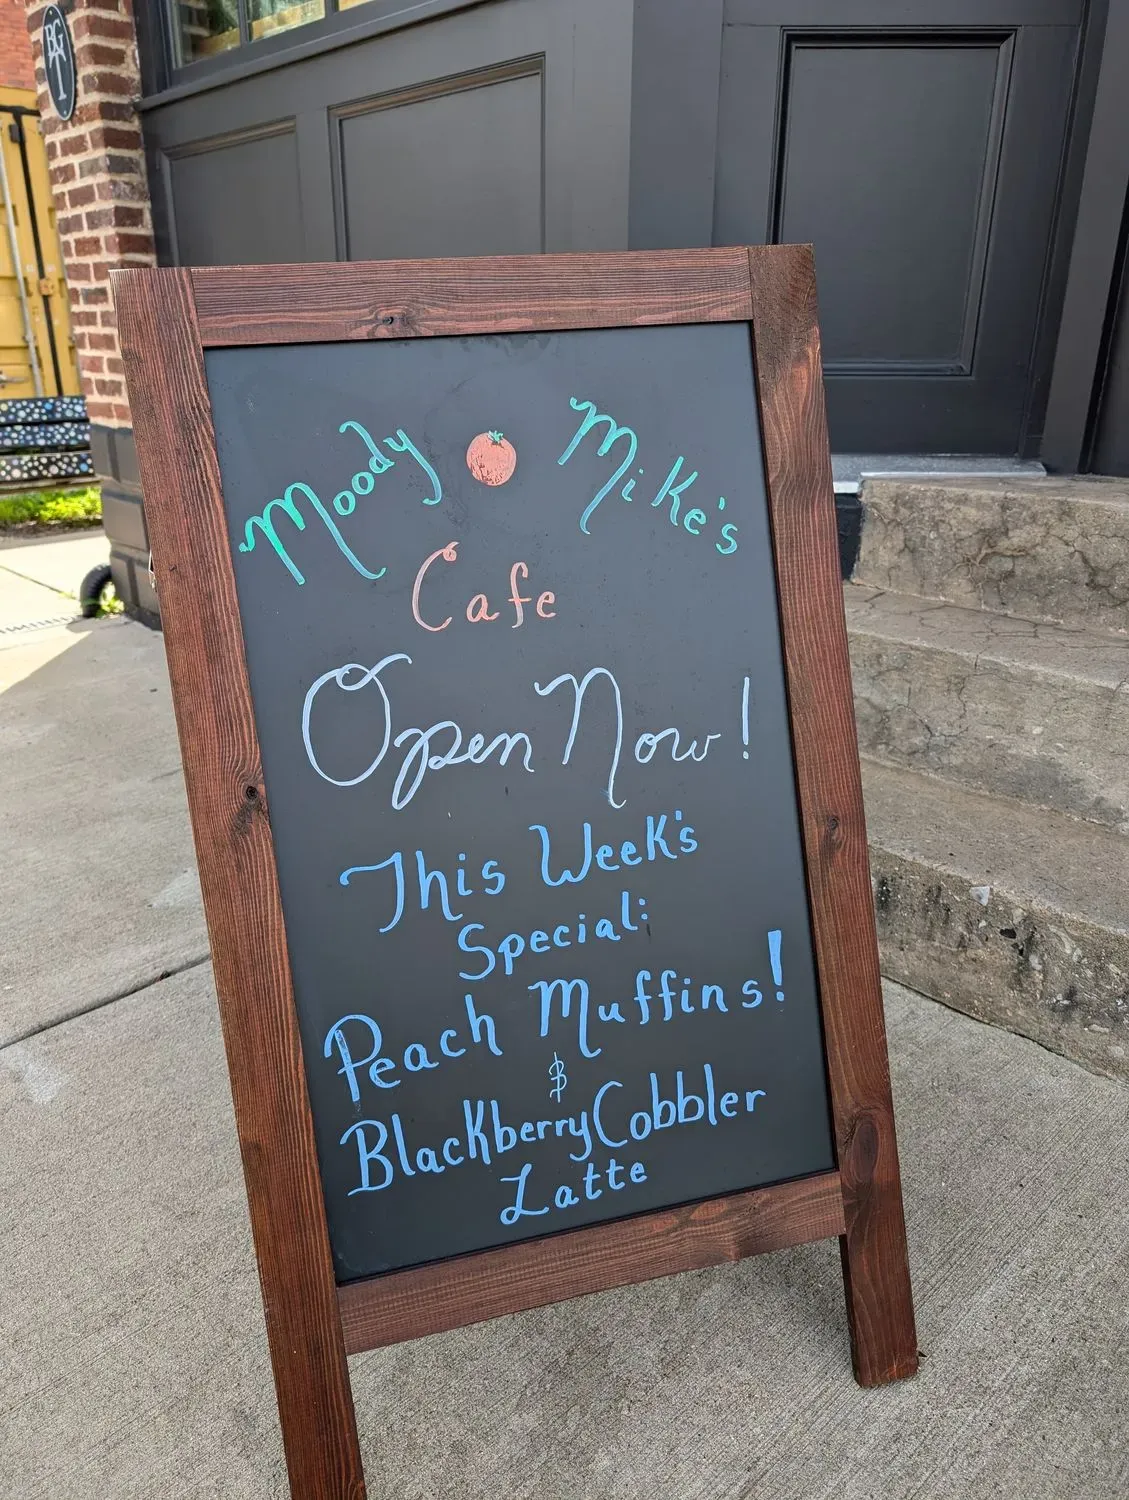 BGAT
Moody Mike's
Cafe
Open Now!
This Week's
Special:
Peach Muffins!
&
Blackberry Cobbler
Latte